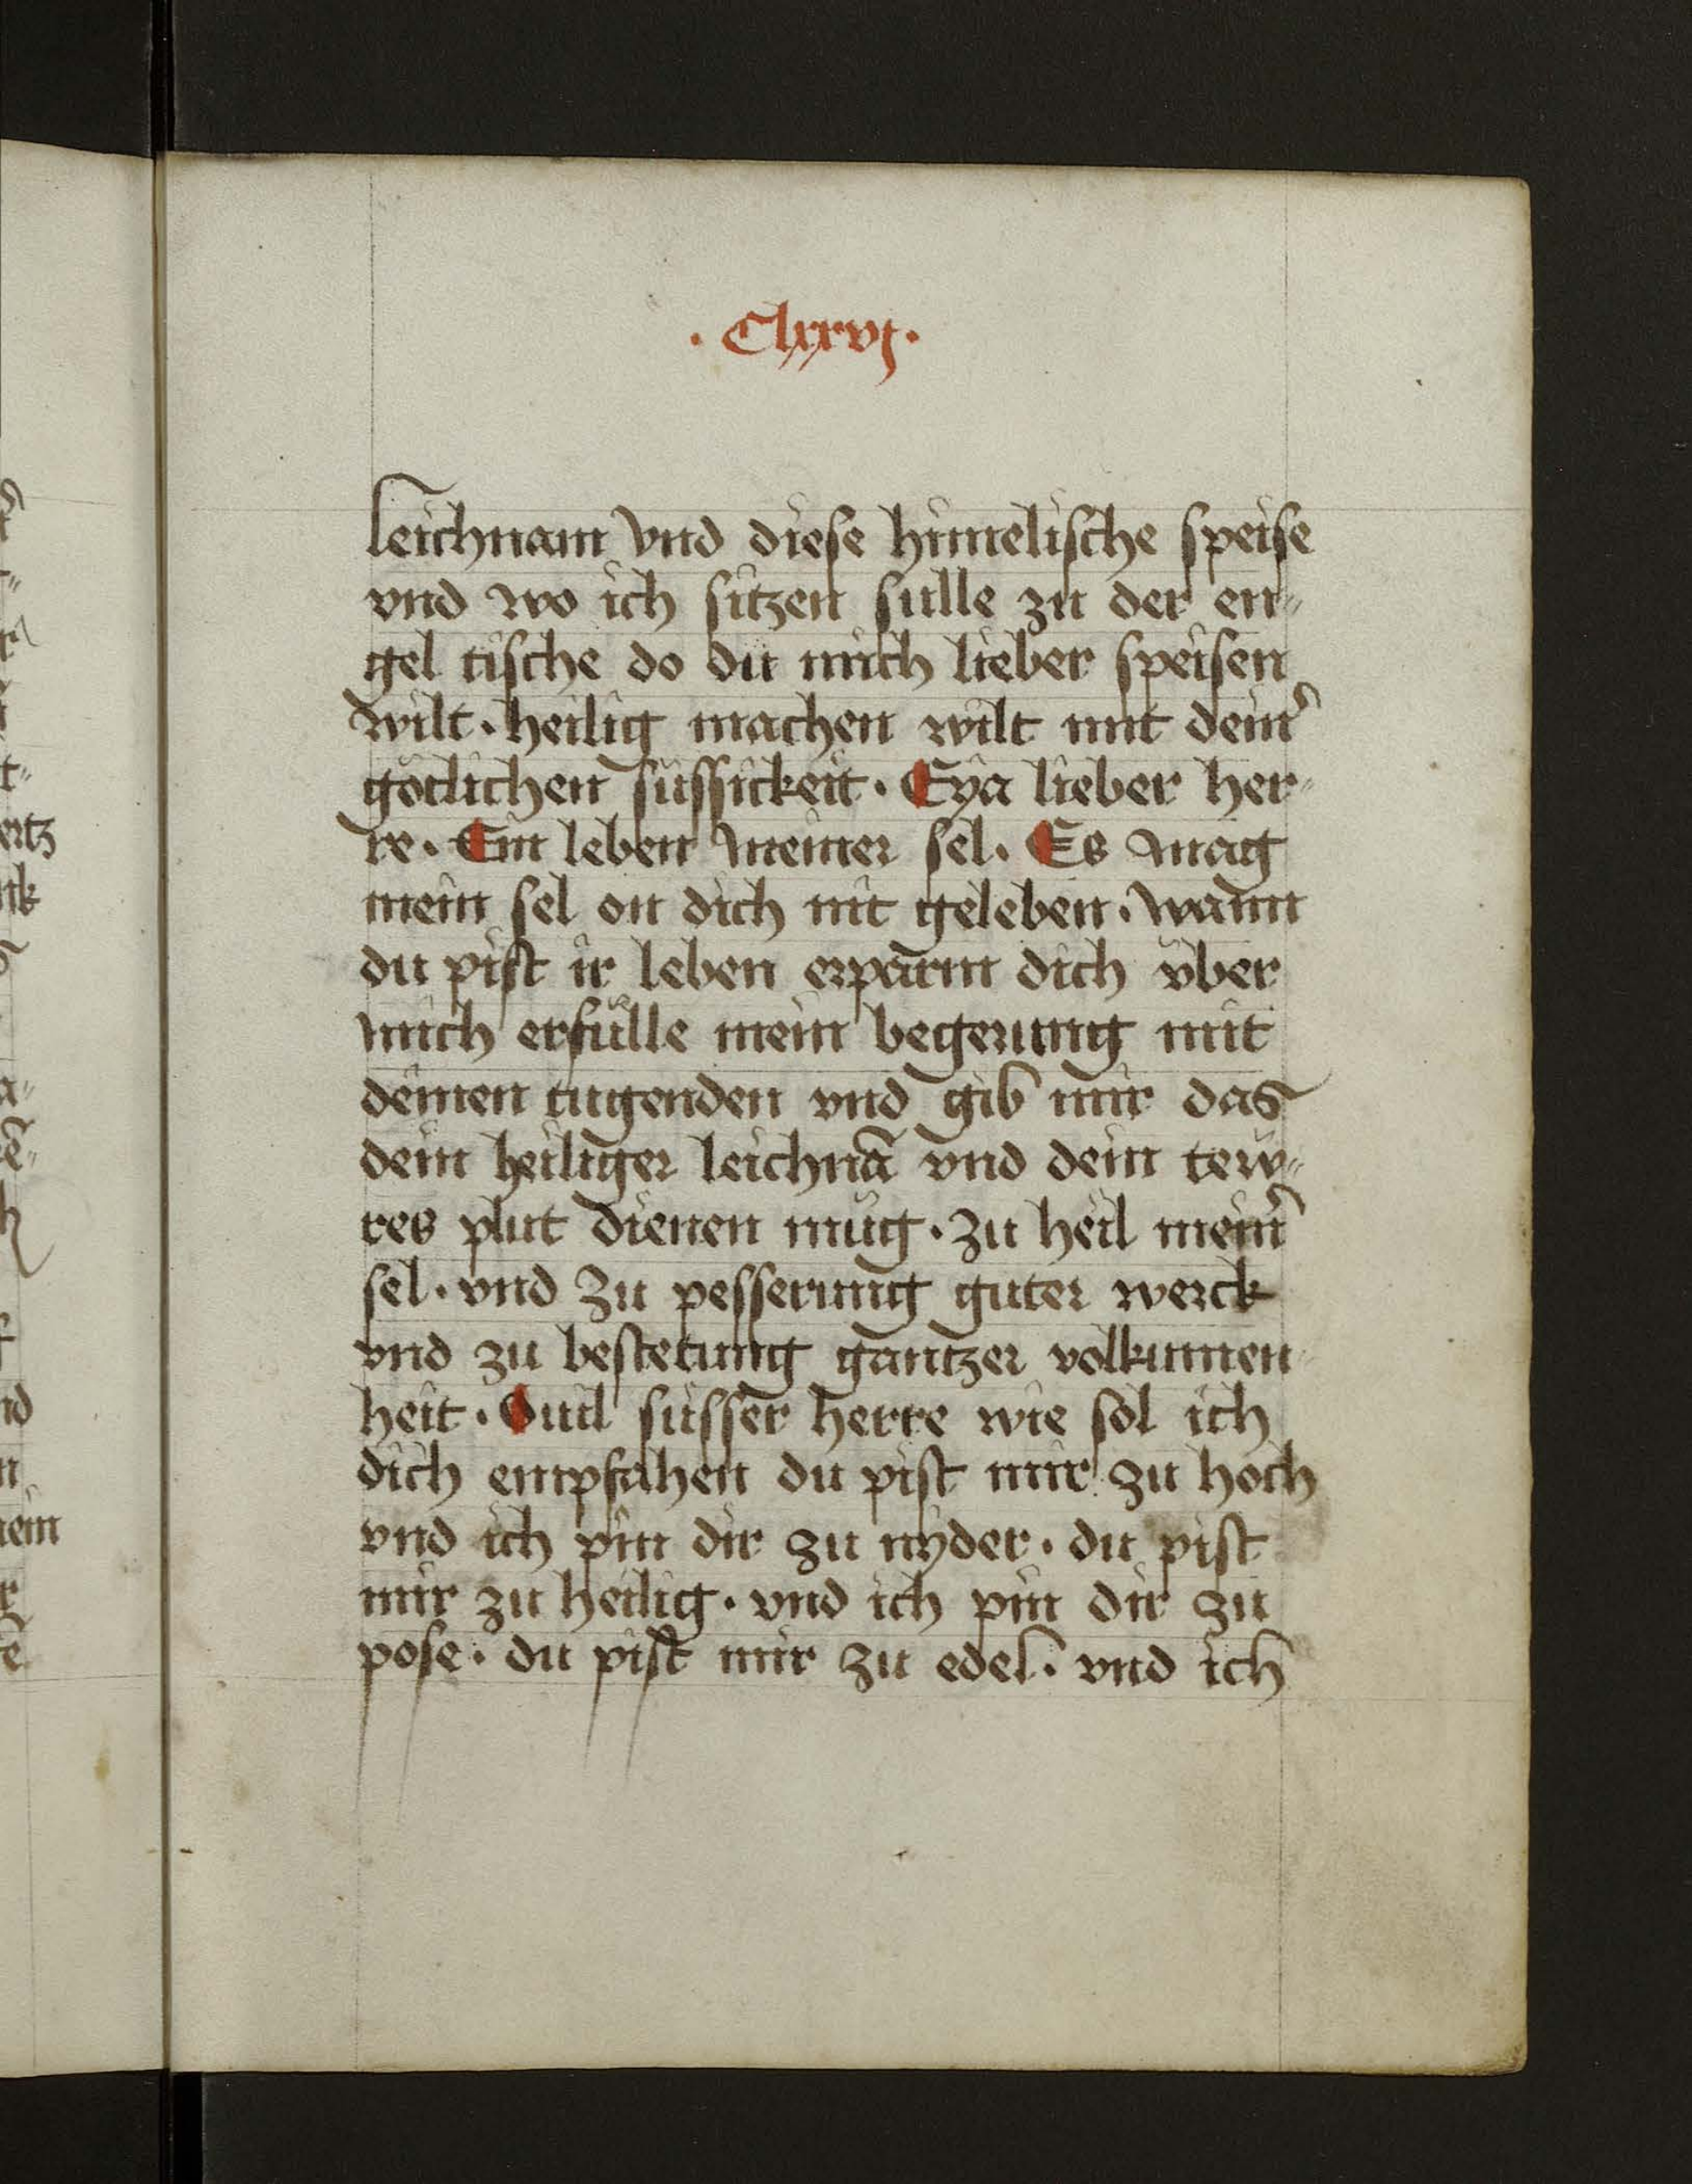 · Clxxvj ·
leichnam vnd diese himelische speise
vnd wo ich sitzen sulle zu der en„
gel tische do du mich lieber speisen
wilt · heilig machen wilt mit dein̾
götlichen süssickeit · Eya lieber her„
re · Ein leben meiner sel · Es mag
mein sel on dich nit geleben · wann
du pist ir leben erparm dich vber
mich erfülle mein begerung mit
deinen tugenden vnd gib mir das
dein heiliger leichnã vnd dein tew„
res plut dienen müg · zu heil mein̾
sel · vnd zu pesserung guter werck
vnd zu bestetung gantzer volkumen„
heit · Ouil süsser herre wie sol ich
dich empfahen du pist mir zu hoch
vnd ich pin dir zu nyder · du pist
mir zu heilig · vnd ich pin dir zu
pose · du pist mir zu edel · vnd ich